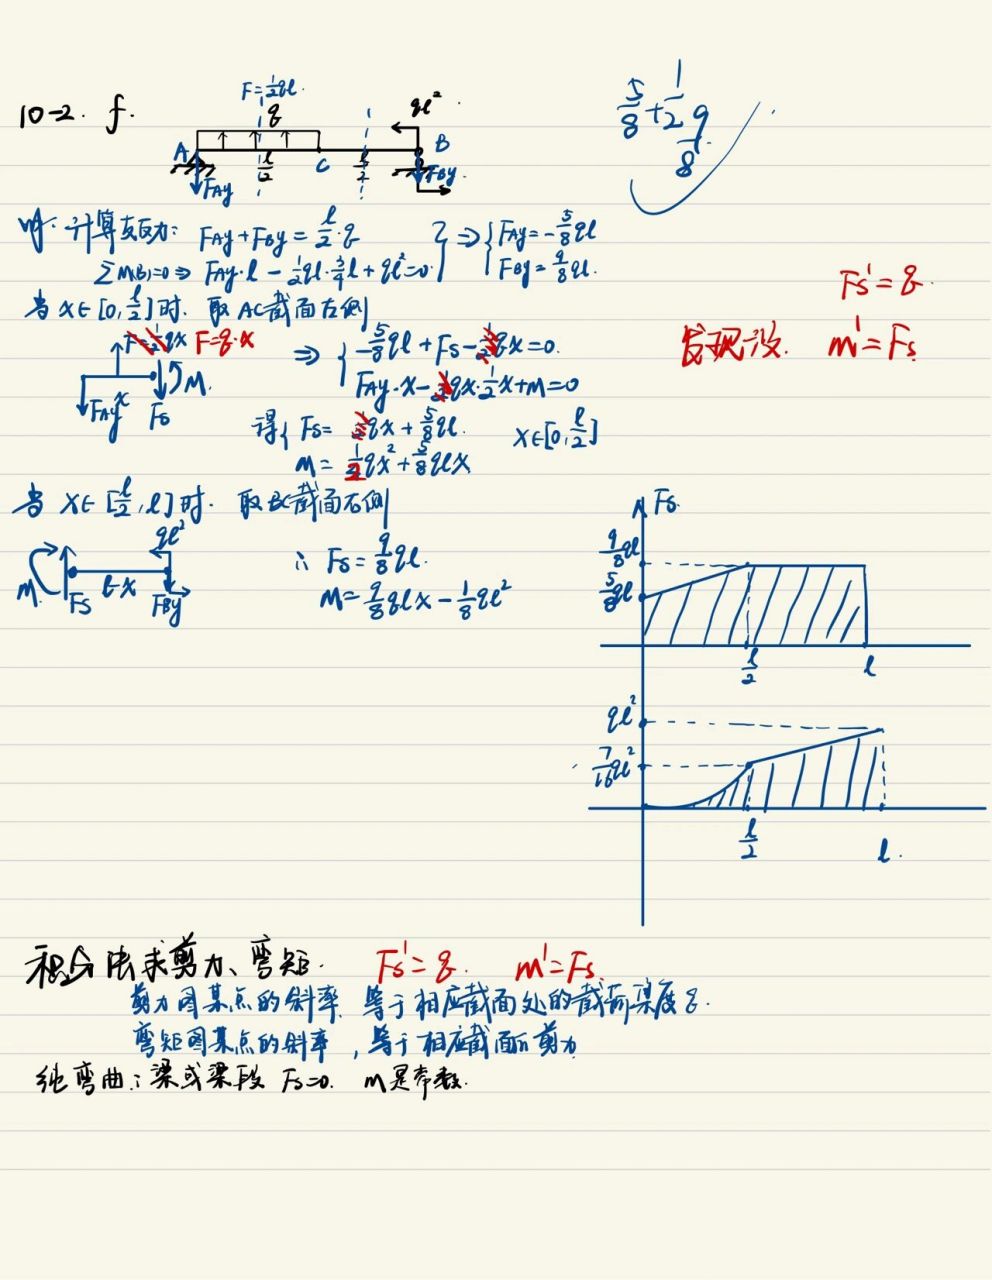 10-2. f.
F=½ql.
q
ql²
A
l/2
C
l/2
B
FAy
FBy
5/8+1/2 9/8
解: 计算支反力: FAy+FBy=l/2·q
ΣM(B)=0⇒ FAy·l-½ql·¾l+ql²=0 } ⇒ { FAy=-5/8ql
FBy=9/8ql.
Fs'=q
当 x∈[0,l/2]时. 取AC截面左侧
发现没. m'=Fs
F=½qx F=q·x
⇒ { -5/8ql+Fs-qx=0.
FAy·x-qx·½x+M=0
M.
x
FAy
Fs
得{ Fs=qx+5/8ql. x∈[0,l/2]
M=½qx²+5/8qlx
当 x∈[l/2,l]时. 取BC截面右侧
ql²
M
Fs
l-x
FBy
∴ Fs=9/8ql.
M=9/8qlx-1/8ql²
Fs.
9/8ql
5/8ql
l/2
l
ql²
7/16ql²
l/2
l.
积分法求剪力、弯矩. Fs'=q. m'=Fs.
剪力图某点的斜率, 等于相应截面处的截荷集度q.
弯矩图某点的斜率, 等于相应截面的剪力
纯弯曲: 梁或梁段 Fs=0. M是常数.